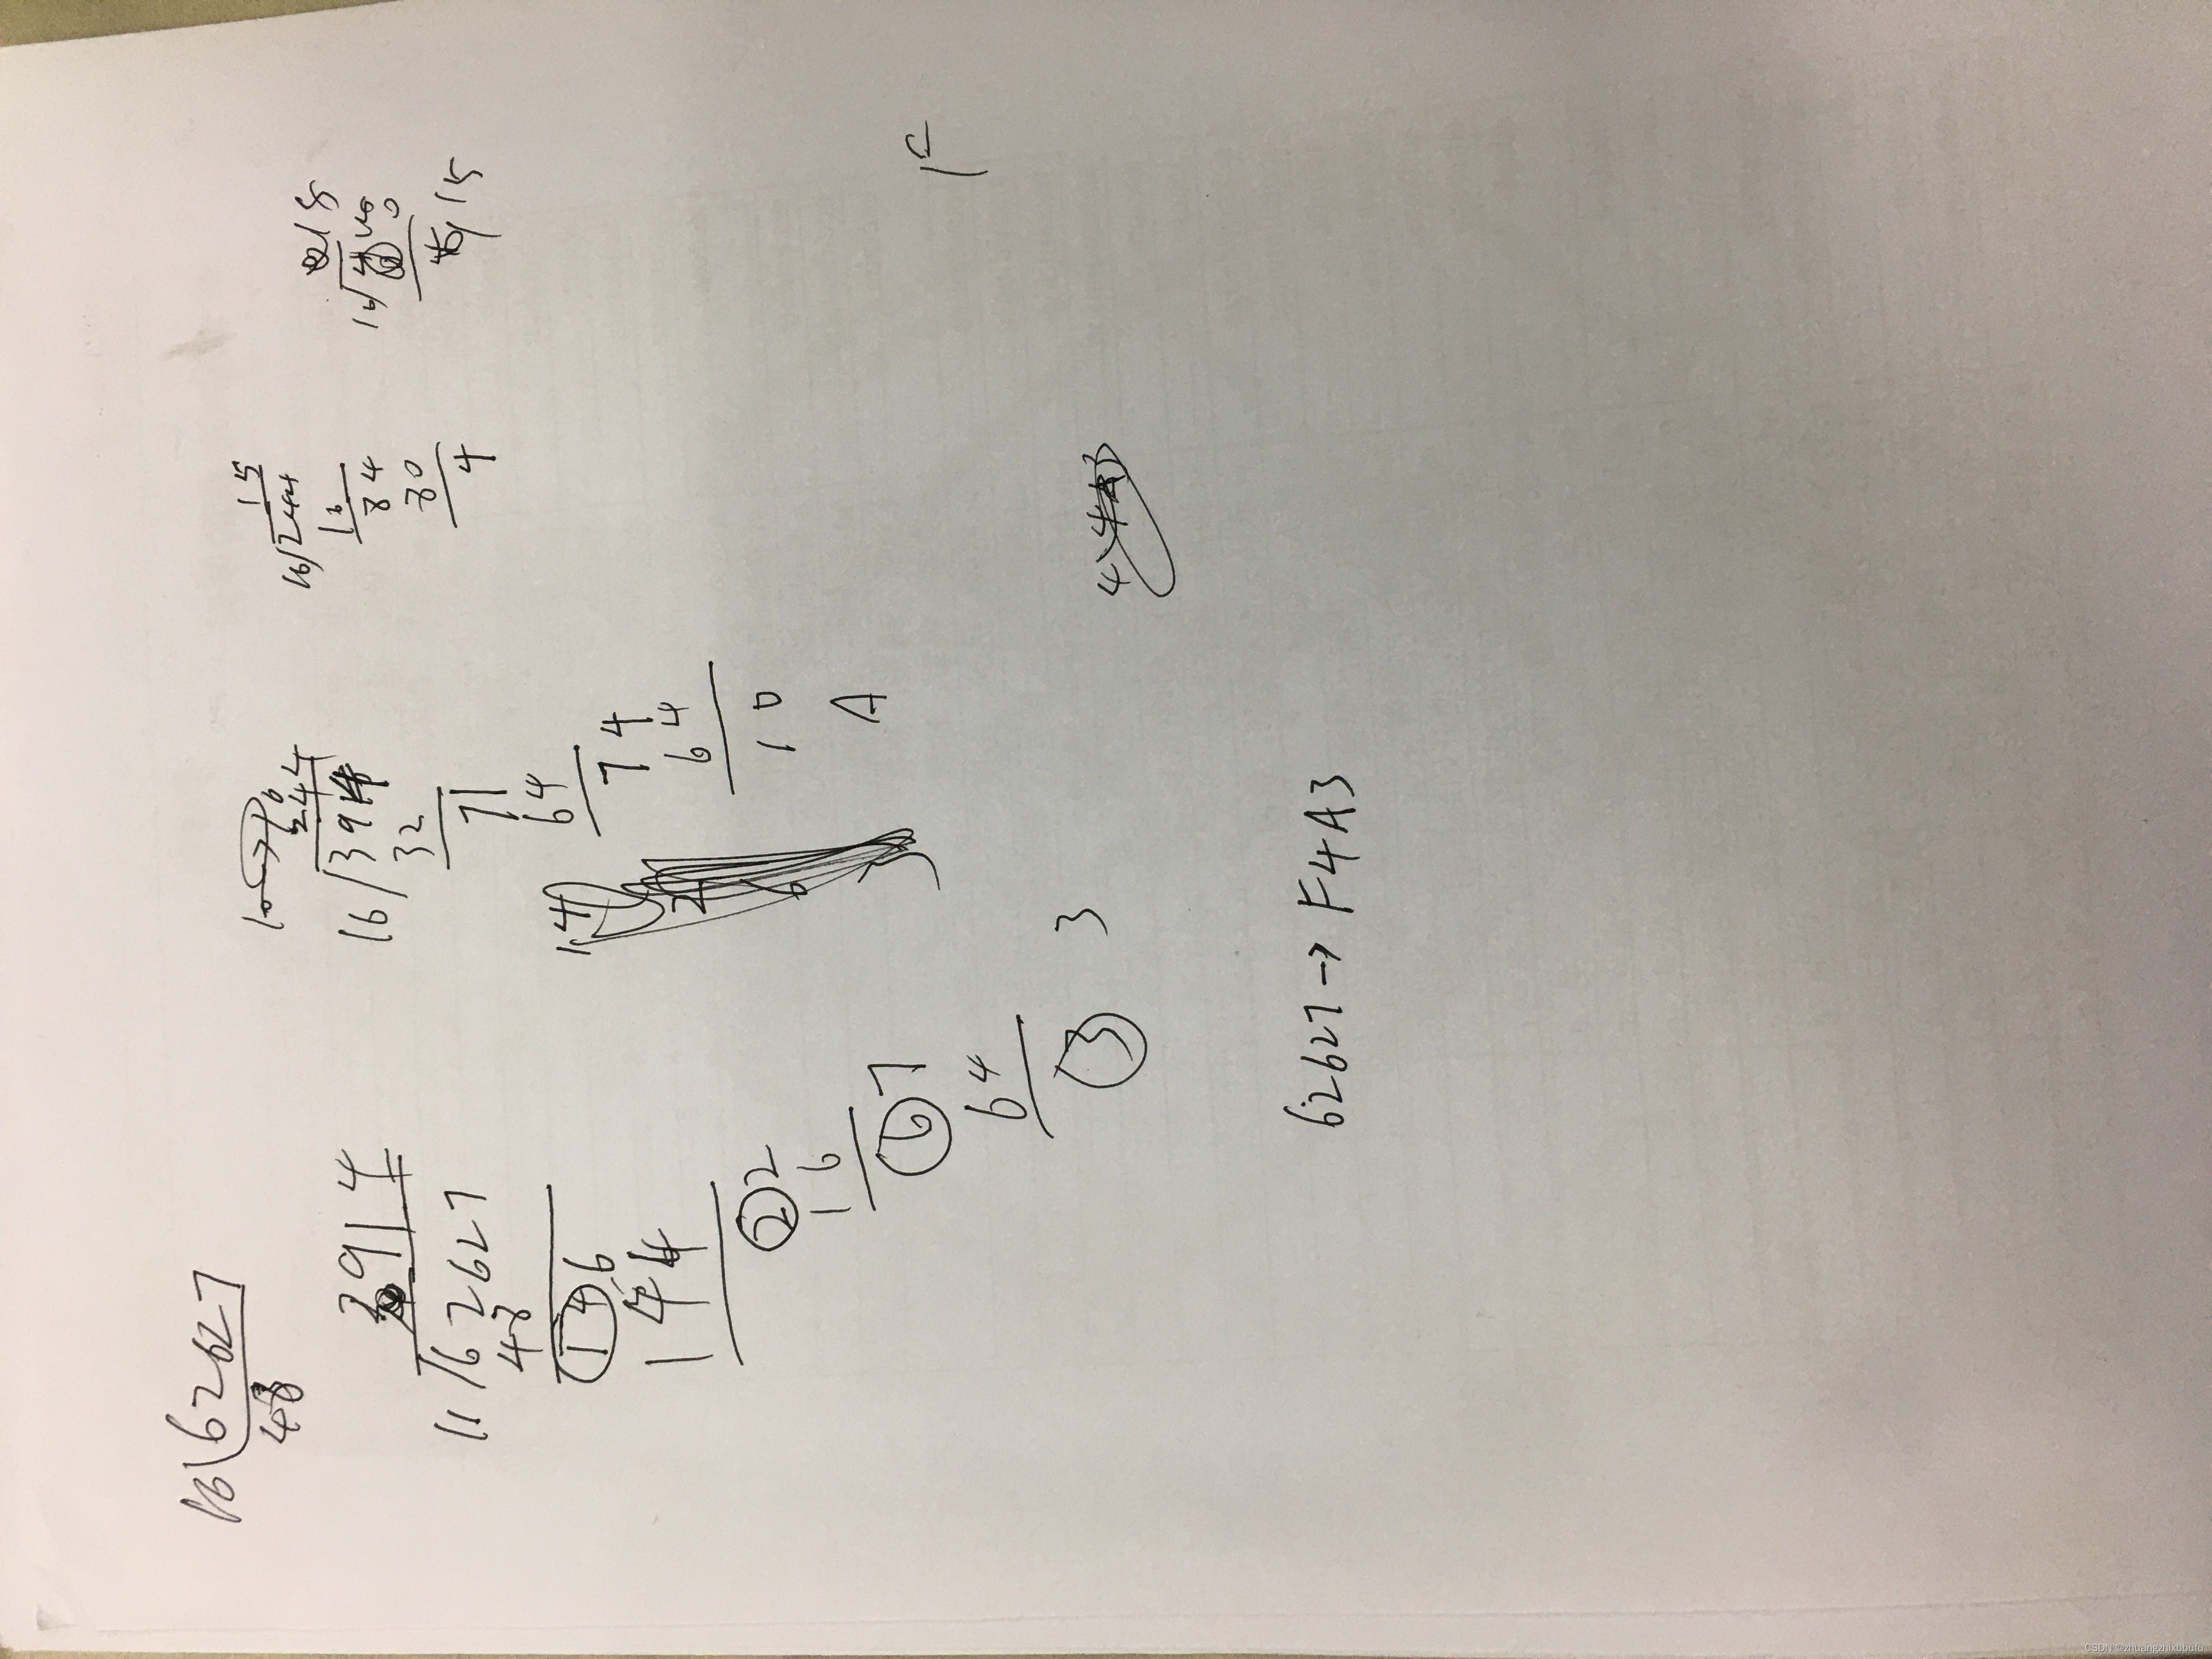 16 62627
48
3914
11/62627
48
146
144
22
16
67
64
3
3
16
244
16/3914
32
71
64
74
64
10
A
15
16/244
16
84
80
4
15
0
15
F
62627→F4A3
CSDN @zhuangzhixubufu